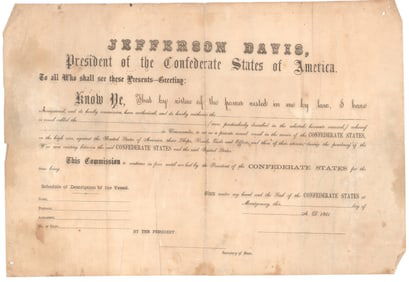 JEFFERSON DAVIS,
President of the Confederate States of America.
To all Who shall see these Presents—Greeting:
Know Ye, That by virtue of the power vested in me by law, I have
commissioned, and do hereby commission, have authorized, and do hereby authorize the
or vessel called the (more particularly described in the schedule hereunto annexed,) whereof
is Commander, to act as a private armed vessel in the service of the CONFEDERATE STATES,
on the high seas, against the United States of America, their Ships, Vessels, Goods and Effects, and those of their citizens, during the pendency of the
War now existing between the said CONFEDERATE STATES and the said United States.
This Commission to continue in force until revoked by the President of the CONFEDERATE STATES for the
time being.
Schedule of Description of the Vessel.
Name,
Tonnage,
Armament,
No. of Crew,
Given under my hand and the Seal of the CONFEDERATE STATES at
Montgomery, this day of
A. D. 1861
BY THE PRESIDENT.
Secretary of State.